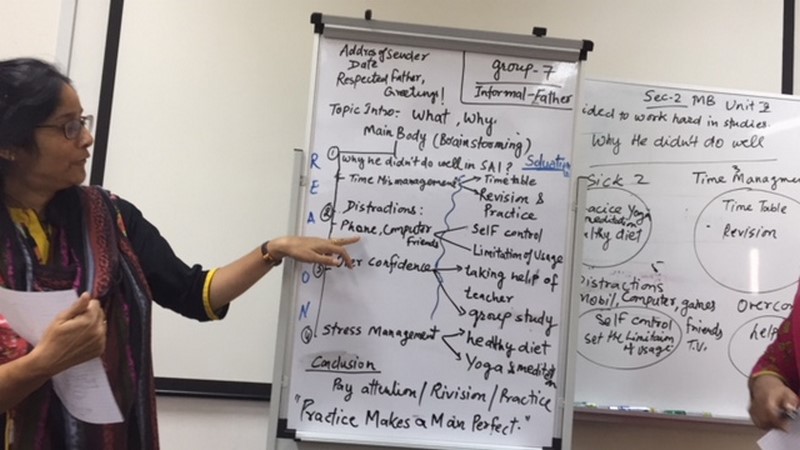 Addres of Sender
Date
Respected Father,
Greetings!
group-7
Informal-Father
Topic Intro: What, Why.
Main Body (Brainstorming)
REASON
① Why he didn't do well in SA1?
Time Mismanagement
② Distractions:
Phone, Computer
friends
③ Over confidence
④ Stress Management
Solution
Time table
Revision &
Practice
Self control
Limitation of Usage
taking help of
teacher
group study
healthy diet
Yoga & meditation
Conclusion
Pay attention/Rivision/Practice
"Practice Makes a Man Perfect."
Sec-2 MB Unit
ided to work hard in studies.
Why He didn't do well
Sick 2
acice Yoga
meditation
althy diet
Time Managme
Time Table
Revision
Distractions
Mobil, Computer, games
friends
T.V.
Self control
Set the Limitaion
of usage
Overco
help